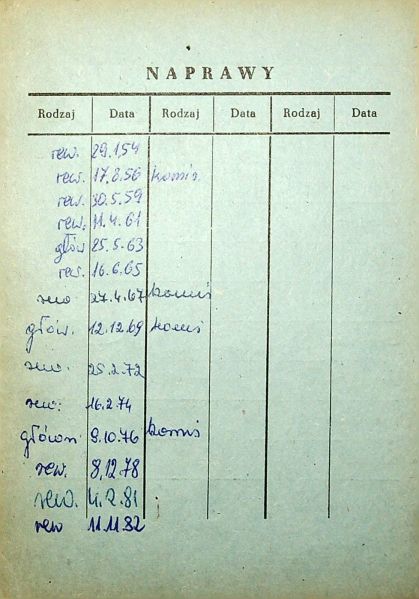 NAPRAWY
Rodzaj Data Rodzaj Data Rodzaj Data
rew. 29.1.54
rew. 17.8.56 komis
rew. 30.5.59
rew. 11.4.61
głów 25.5.63
rew. 16.6.65
rew 27.4.67 komis
głów. 12.12.69 komis
rew. 25.2.72
rew. 16.2.74
główn 9.10.76 komis
rew. 8.12.78
rew. 4.2.81
rew 11.11.82